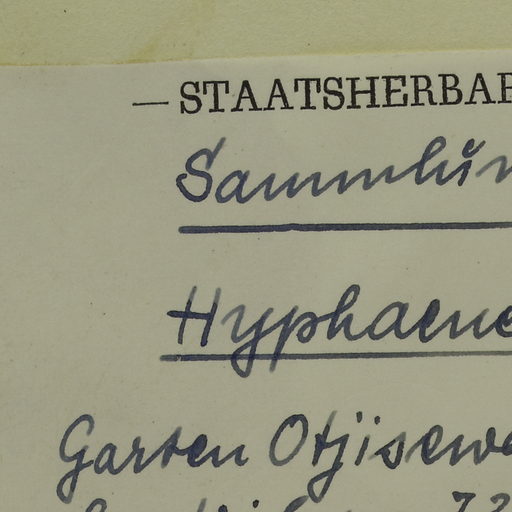 — STAATSHERBAR
Sammlun
Hyphaene
Garten Otjisewa